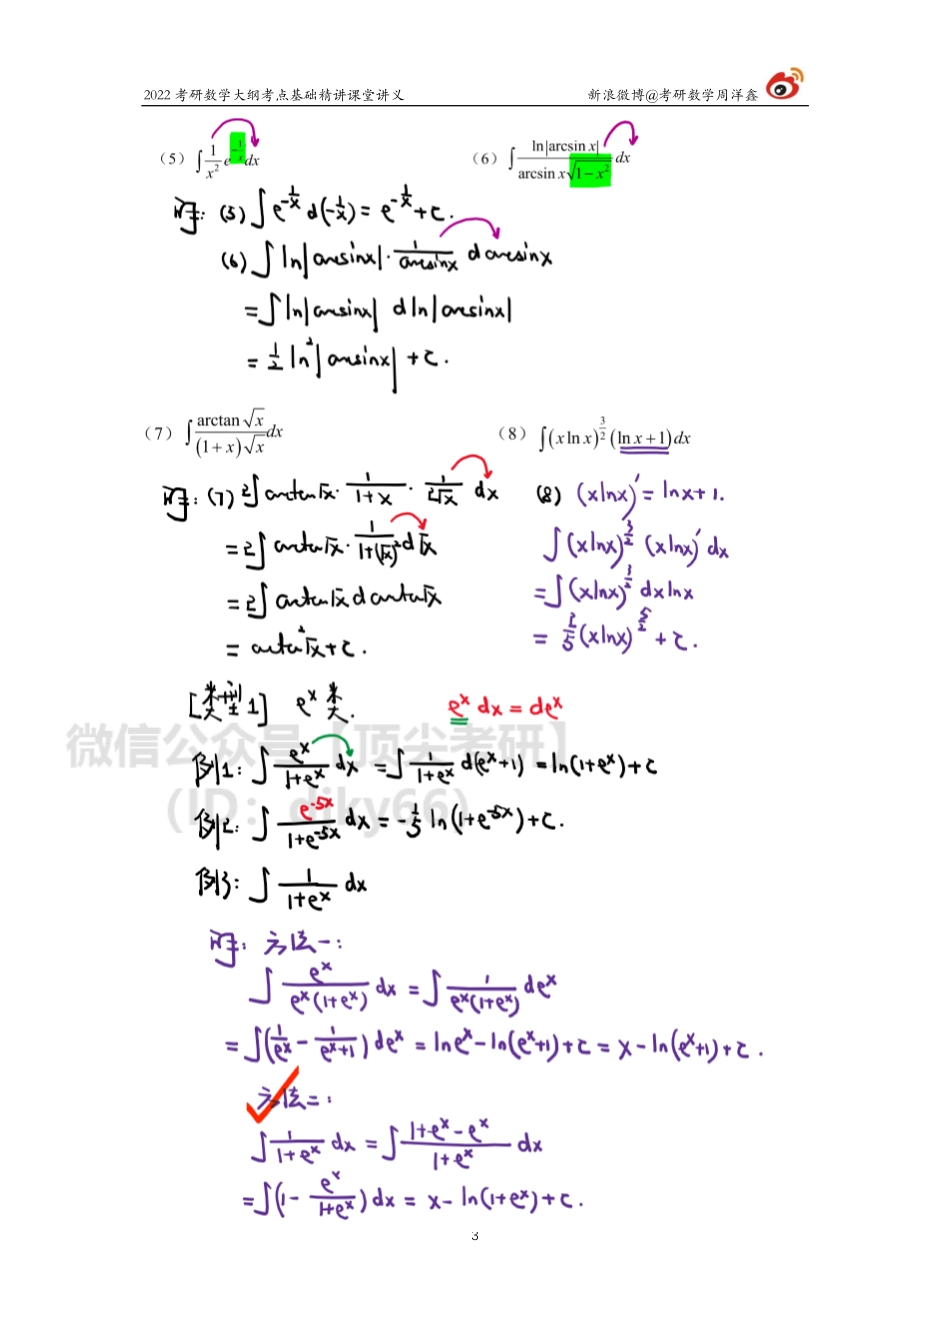 2022 考研数学大纲考点基础精讲课堂讲义 新浪微博@考研数学周洋鑫
（5）∫ 1/x² e^{-1/x} dx （6）∫ ln|arcsin x| / (arcsin x √(1−x²)) dx
解: (5) ∫ e^{-1/x} d(-1/x) = e^{-1/x} + C.
(6) ∫ ln|arcsinx| · 1/arcsinx d arcsinx
= ∫ ln|arcsinx| d ln|arcsinx|
= 1/2 ln²|arcsinx| + C.
（7）∫ arctan √x / ((1+x)√x) dx （8）∫ (x ln x)^{3/2} (ln x + 1) dx
解: (7) 2∫ arctan√x · 1/(1+x) · 1/(2√x) dx
= 2∫ arctan√x · 1/(1+(√x)²) d√x
= 2∫ arctan√x d arctan√x
= arctan²√x + C.
(8) (xlnx)′ = lnx+1.
∫ (xlnx)^{3/2} (xlnx)′ dx
= ∫ (xlnx)^{3/2} dxlnx
= 2/5 (xlnx)^{5/2} + C.
[类型1] e^x 类. e^x dx = de^x
微信公众号【顶尖考研】
(ID: djky66)
例1: ∫ e^x/(1+e^x) dx = ∫ 1/(1+e^x) d(e^x+1) = ln(1+e^x)+C
例2: ∫ e^{-5x}/(1+e^{-5x}) dx = -1/5 ln(1+e^{-5x})+C.
例3: ∫ 1/(1+e^x) dx
解: 方法一:
∫ e^x/(e^x(1+e^x)) dx = ∫ 1/(e^x(1+e^x)) de^x
= ∫(1/e^x - 1/(e^x+1)) de^x = lne^x - ln(e^x+1)+C = x - ln(e^x+1)+C.
方法二:
∫ 1/(1+e^x) dx = ∫ (1+e^x-e^x)/(1+e^x) dx
= ∫(1 - e^x/(1+e^x)) dx = x - ln(1+e^x)+C.
3